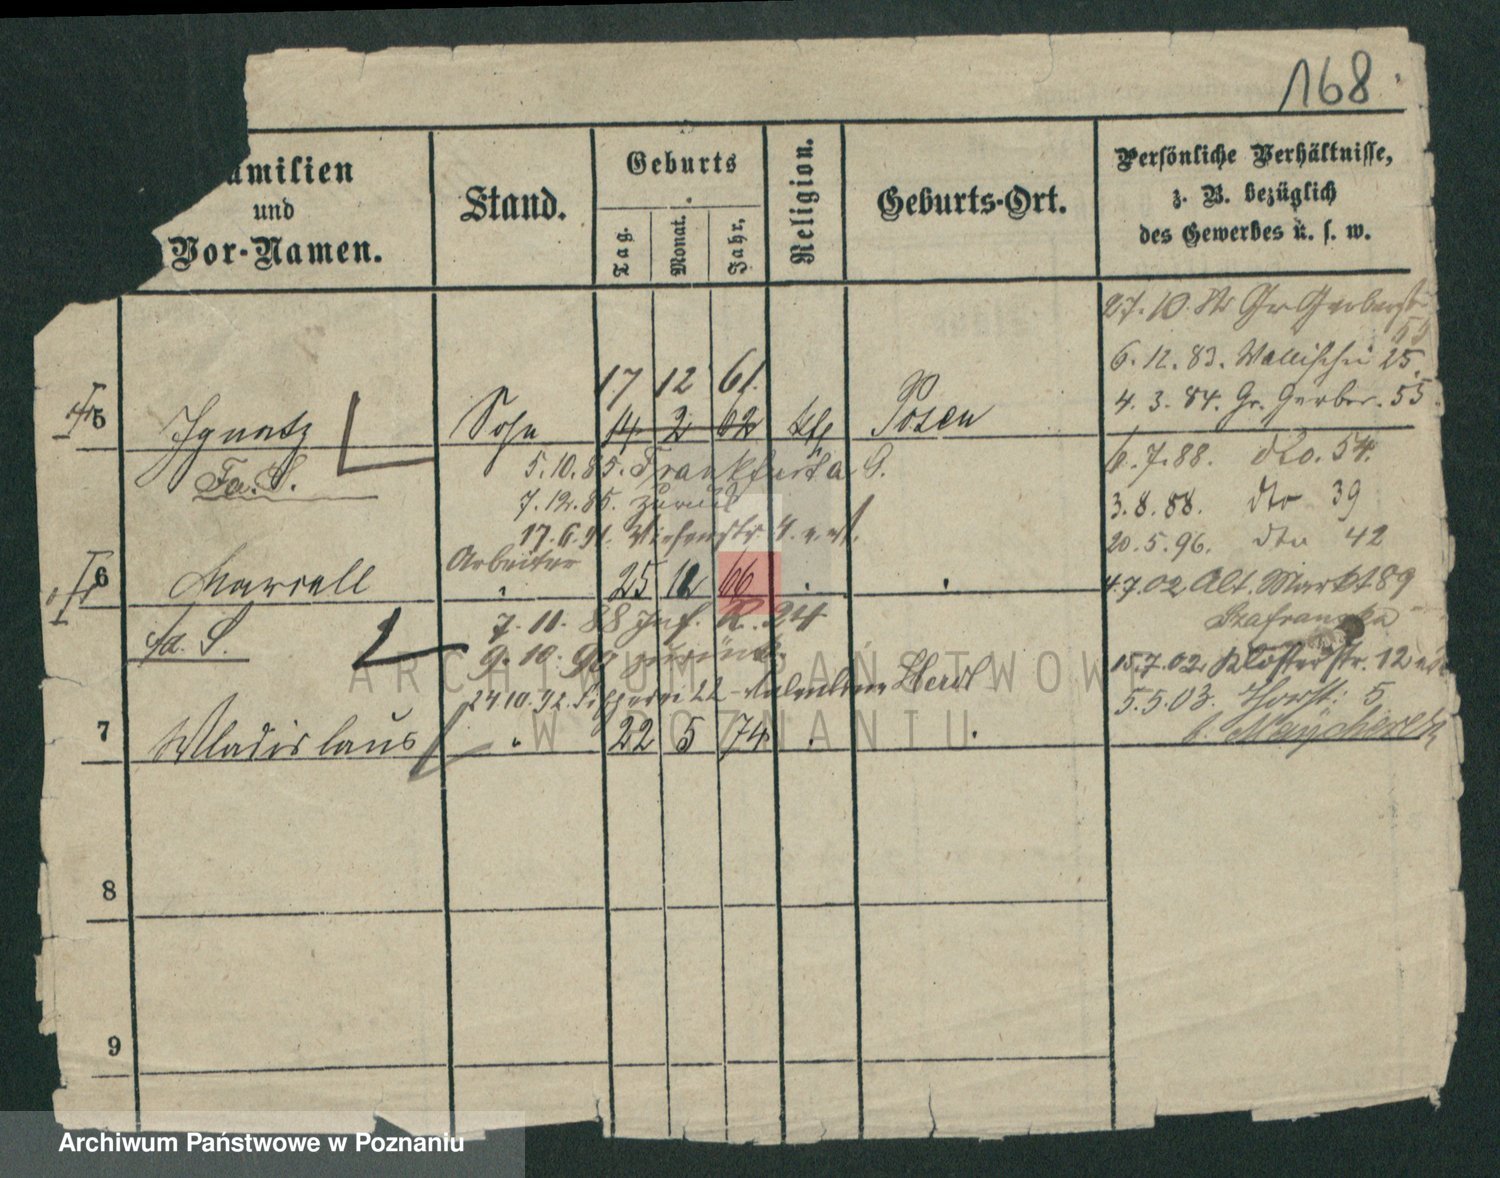 168
amilien
und
Vor-Namen.
Stand.
Geburts
Tag.
Monat.
Jahr.
Religion.
Geburts-Ort.
Persönliche Verhältnisse,
z. B. bezüglich
des Gewerbes u. s. w.
27. 10. Gr Gerberstr
55
6. 12. 83. Wallischei 25.
4. 3. 84. Gr. Gerber. 55.
17 12 61.
5 Ignatz Sohn 14 2 62 kth Posen
Fa. S.
5. 10. 85. Frankfurt a O.
7. 12. 85. zurück
17. 6. 91.
6. 7. 88. dto. 54.
3. 8. 88. dto 39
20. 5. 96. dto 42
Arbeiter
6 Marcell " 25 12 66 . .
4 7 02 Alt. Markt 89
Szafranska
fa. S.
7. 11. 88 Inf. R. 24
9. 10. 90 zurück.
24. 10. 92. 22
15. 7. 02 Klosterstr. 12
5. 5. 03. 5
7 Wladislaus " 22 5 74 . .
8
9
ARCHIWUM PAŃSTWOWE
W POZNANIU
Archiwum Państwowe w Poznaniu